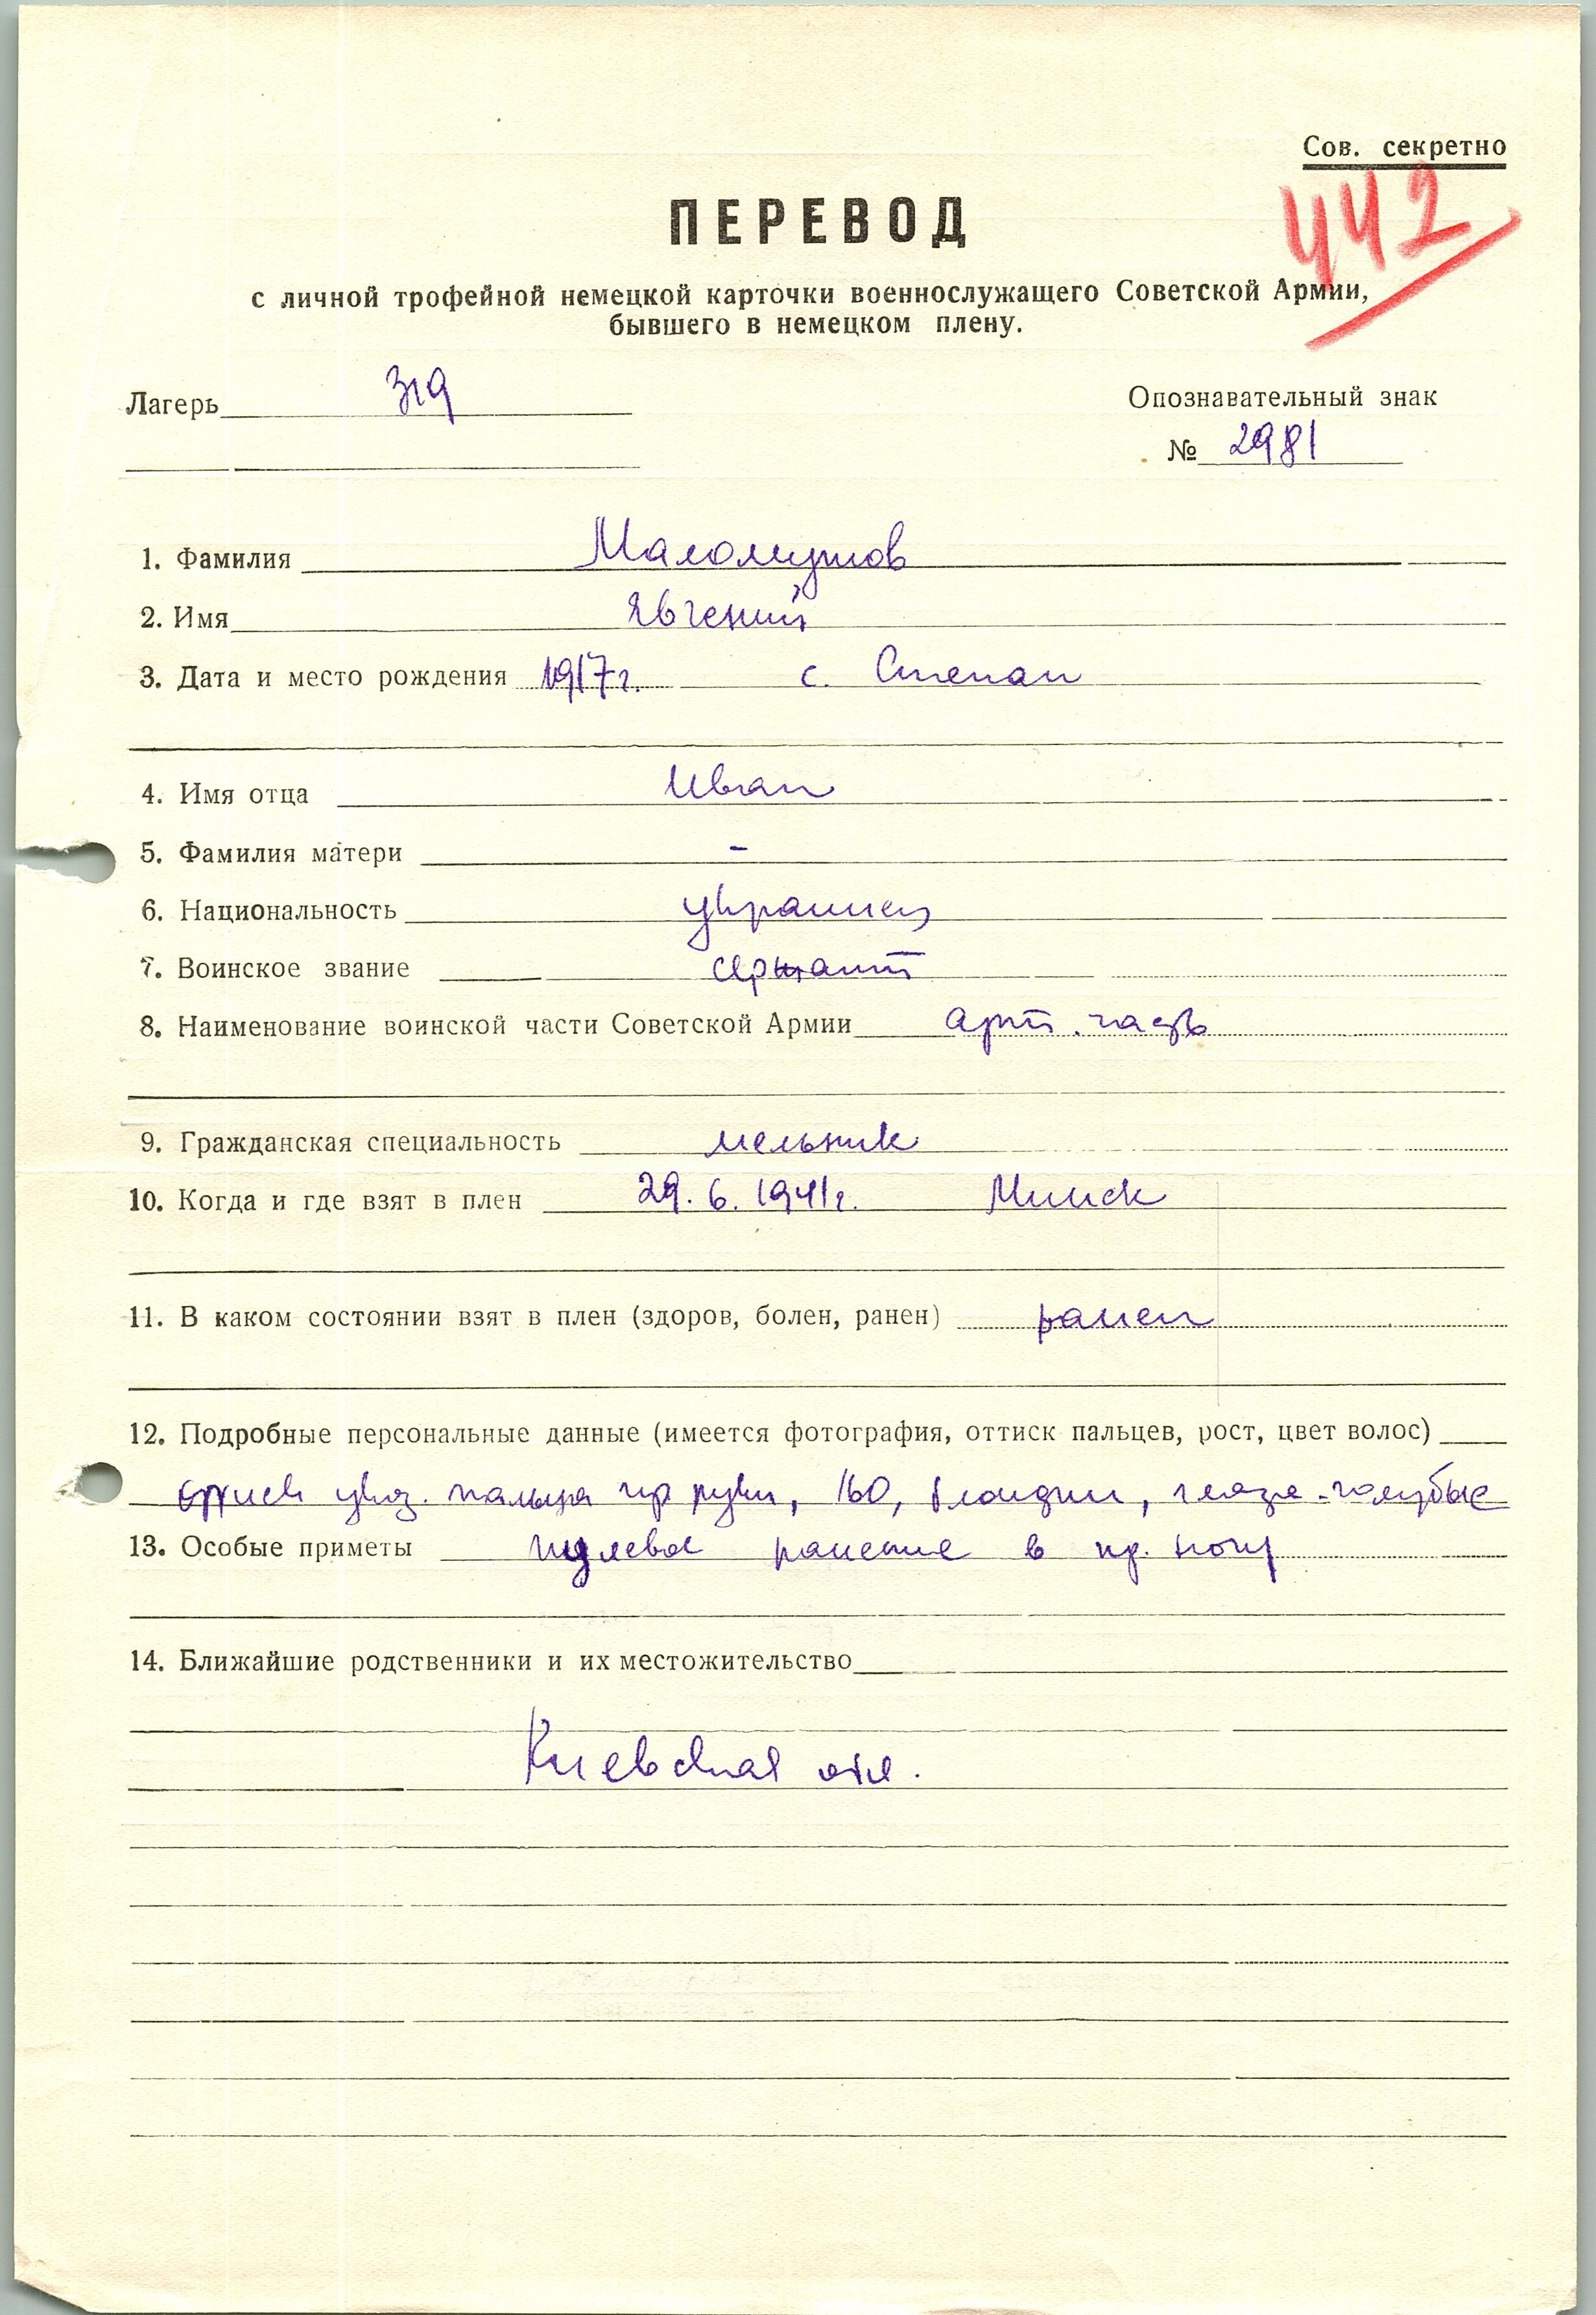 Сов. секретно
442
ПЕРЕВОД
с личной трофейной немецкой карточки военнослужащего Советской Армии,
бывшего в немецком плену.
Лагерь 319
Опознавательный знак
№ 2981
1. Фамилия
2. Имя Явгений
3. Дата и место рождения 1917г. с. Степан
4. Имя отца Иван
5. Фамилия матери -
6. Национальность украинец
7. Воинское звание сержант
8. Наименование воинской части Советской Армии арт. часть
9. Гражданская специальность мельник
10. Когда и где взят в плен 29.6.1941г. Минск
11. В каком состоянии взят в плен (здоров, болен, ранен) ранен
12. Подробные персональные данные (имеется фотография, оттиск пальцев, рост, цвет волос)
оттиск указ. пальца пр руки, 160, блондин, глаза-голубые
13. Особые приметы пулевое ранение в пр. ногу
14. Ближайшие родственники и их местожительство
Киевская обл.